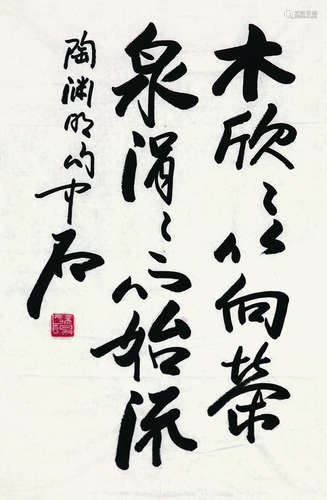 木欣〻以向荣
泉涓〻而始流
陶渊明句 中石